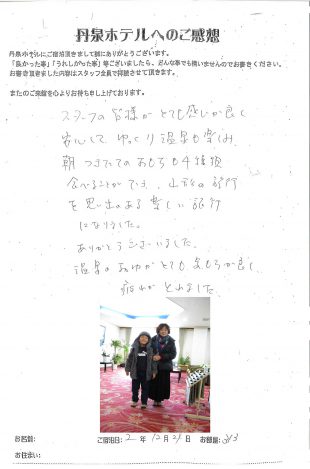 丹泉ホテルへのご感想
丹泉ホテルにご宿泊頂きまして誠にありがとうございます。
「良かった事」「うれしかった事」等ございましたら、どんな事でも構いませんのでお書きください。
お書き頂きました内容はスタッフ全員で拝読させて頂きます。
またのご来館を心よりお待ち申し上げております。
スタッフの皆様がとても感じが良く
安心して ゆっくり温泉も楽しみ
朝 つきたてのおもちも4種類
食べることができ、山形の旅行
を思い出のある楽しい旅行
になりました。
ありがとうございました。
温泉のおゆがとてもきもちが良く
疲れがとれました
お名前: ご宿泊日: 2年 12月 21日 お部屋: 313
お住まい: